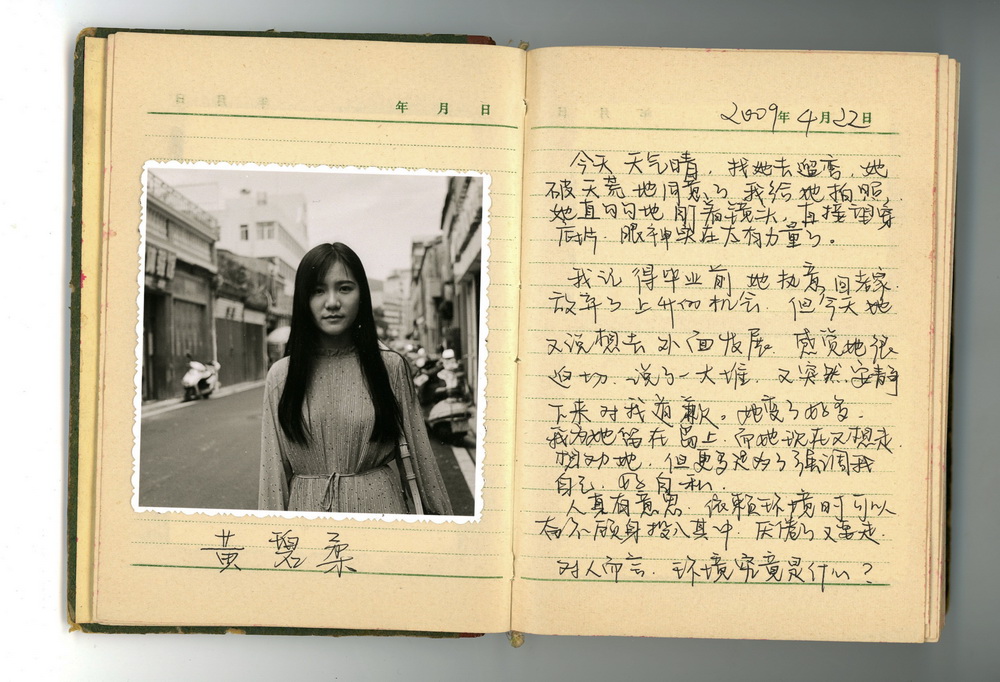 年 月 日
黄碧柔
2009年4月22日
今天 天气晴,找她去遛弯,她
破天荒地同意了,我给她拍照,
她直勾勾地盯着镜头,直接望穿
底片,眼神实在太有力量了。
我记得毕业前她执意回老家,
放弃了上升的机会,但今天她
又说想去外面发展,感觉她很
迫切,说了一大堆,又突然安静
下来对我道歉。她变了好多,
我为她留在岛上,而她现在又想走,
想劝她,但更多是为了强调我
自己,好自私,
人真有意思,依赖环境时可以
奋不顾身投入其中,厌倦了又要走,
对人而言,环境究竟是什么?